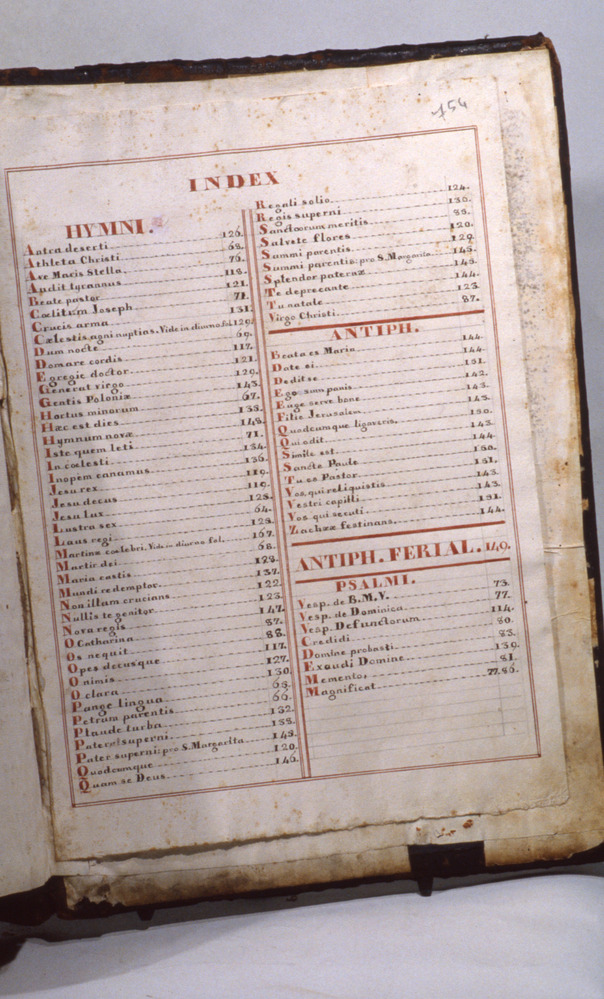 154
INDEX
HYMNI.
Antra deserti 126.
Athleta Christi 68.
Ave Maris Stella 76.
Audit tyrannus 118.
Beate pastor 121.
Cœlitum Joseph 71.
Crucis arma 131.
Cælestis agni nuptias. Vide in diurno fol. 129.
Dum nocte 69.
Domare cordis 117.
Egregie doctor 121.
Generat virgo 129.
Gentis Poloniæ 143.
Hortus minorum 67.
Hæc est dies 138.
Hymnum novæ 148.
Iste quem leti 71.
In cœlesti 134.
Inopem canamus 136.
Jesu rex 119.
Jesu decus 119.
Jesu lux 128.
Lustra sex 64.
Laus regi 128.
Martinæ cœlebri. Vide in diurno fol. 167.
Martir dei 68.
Maria castis 128.
Mundi redemptor 137.
Non illam crucians 122.
Nullis te genitor 123.
Nova regis 147.
O Catharina 87.
Os nequit 88.
Opes decusque 117.
O nimis 127.
O clara 130.
Pange lingua 63.
Petrum parentis 66.
Plaude turba 132.
Pater superni 138.
Pater superni: pro S. Margarita 148.
Quodcumque 120.
Quam se Deus 146.
Regali solio 124.
Regis superni 135.
Sanctorum meritis 85.
Salvete flores 120.
Summi parentis 129.
Summi parentis: pro S. Margarita 148.
Splendor paternæ 145.
Te deprecante 144.
Tu natale 123.
Virgo Christi 87.
ANTIPH.
Beata es Maria 144.
Date ei 144.
Dedit se 151.
Ego sum panis 142.
Euge serve bone 143.
Filiæ Jerusalem 143.
Quodcumque ligaveris 150.
Qui odit 143.
Simile est 144.
Sancte Paule 150.
Tu es Pastor 151.
Vos, qui reliquistis 143.
Vestri capilli 143.
Vos qui secuti 151.
Zachæe festinans 144.
ANTIPH. FERIAL. 149.
PSALMI.
Vesp. de B.M.V. 73.
Vesp. de Dominica 77.
Vesp. Defunctorum 114.
Credidi 80.
Domine probasti 83.
Exaudi Domine 139.
Memento 81.
Magnificat 77.86.